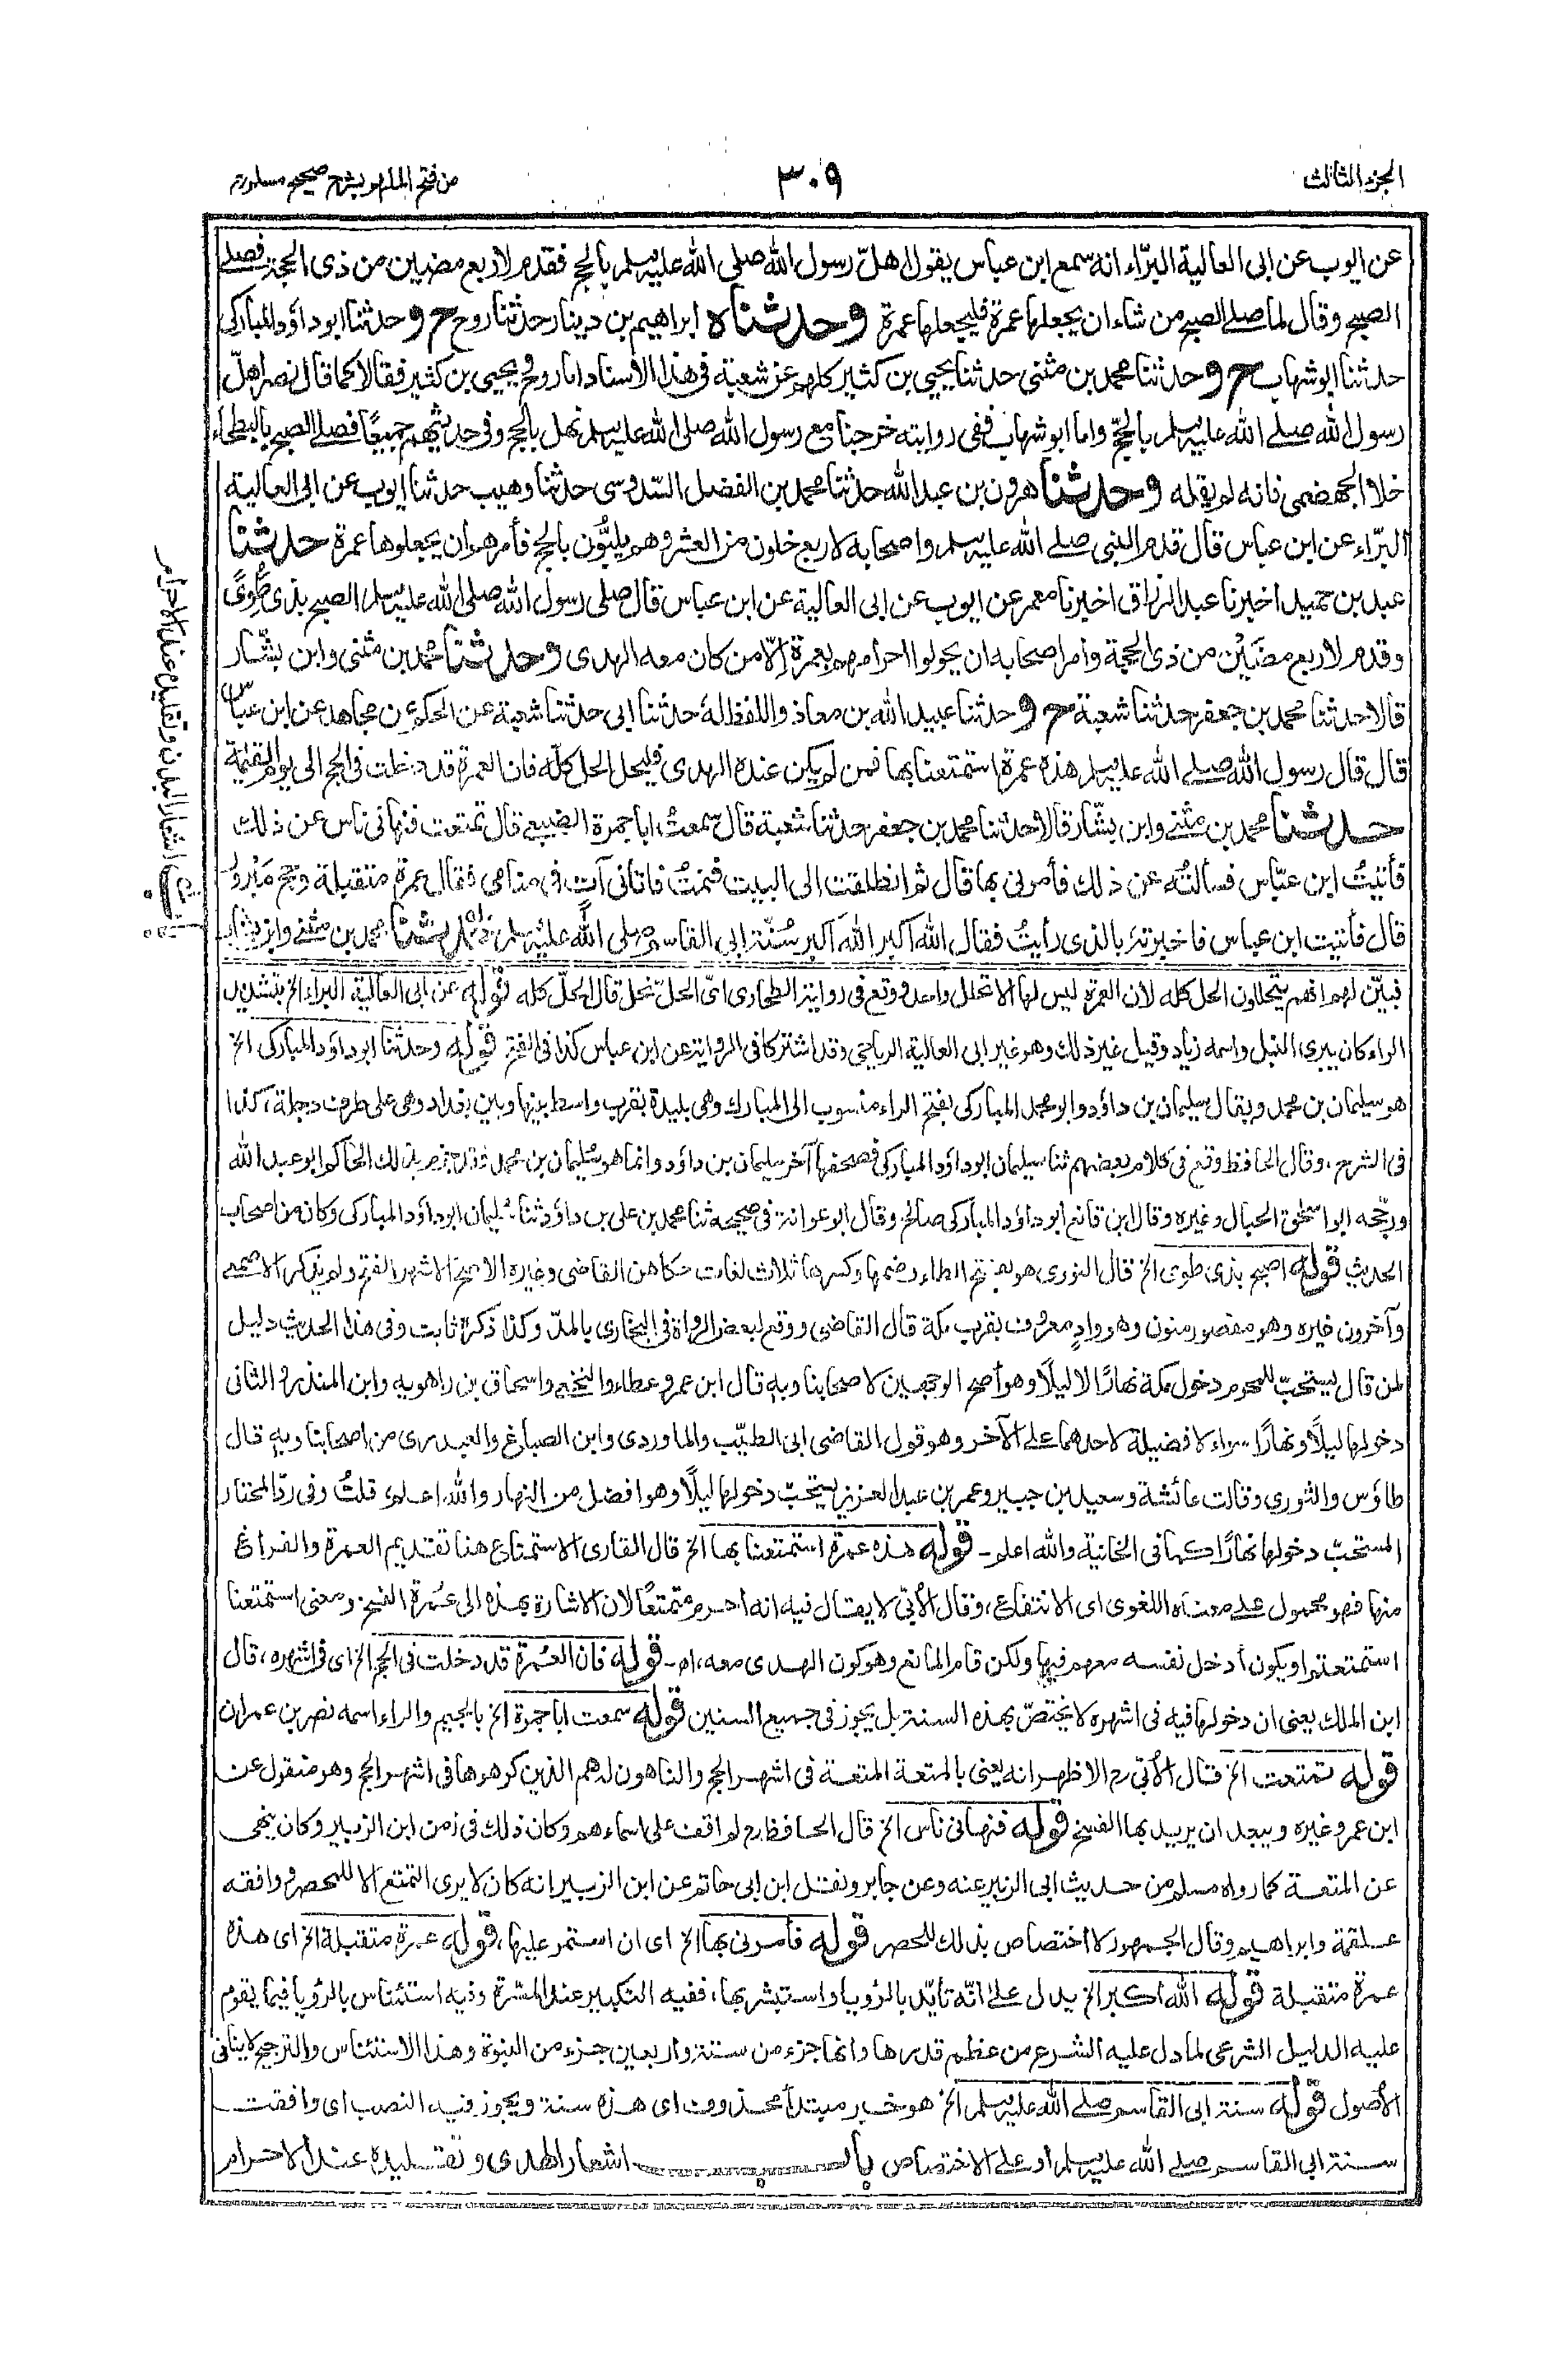 الجزء الثالث
٣٠٩
من فتح الملهم بشرح صحيح مسلم
عن ايوب عن ابى العالية البرّاء انه سمع ابن عباس يقول اهلّ رسول الله صلى الله عليه وسلم بالحج فقدم لاربع مضين من ذى الحجة فصلى
الصبح وقال لما صلى الصبح من شاء ان يجعلها عمرة فليجعلها عمرة وحدثناه ابراهيم بن دينار حدثنا روح ح وحدثنا ابو داؤد المباركى
حدثنا ابو شهاب ح وحدثنا محمد بن مثنى حدثنا يحيى بن كثير كلهم عن شعبة فى هذا الاسناد اما روح ويحيى بن كثير فقالا كما قال نصر اهلّ
رسول الله صلى الله عليه وسلم بالحجّ واما ابو شهاب ففى روايته خرجنا مع رسول الله صلى الله عليه وسلم نهل بالحج وفى حديثهم جميعًا فصلى الصبح بالبطحاء
خلا الجهضمى فانه لم يقله وحدثنا هرون بن عبد الله حدثنا محمد بن الفضل السّدوسى حدثنا وهيب حدثنا ايوب عن ابى العالية
البرّاء عن ابن عباس قال قدم النبى صلى الله عليه وسلم واصحابه لاربع خلون من العشر وهم يلبُّون بالحج فأمرهم أن يجعلوها عمرة حدثنا
عبد بن حميد اخبرنا عبد الرزاق اخبرنا معمر عن ايوب عن ابى العالية عن ابن عباس قال صلى رسول الله صلى الله عليه وسلم الصبح بذى طُوىً
وقدم لاربع مضَيْن من ذى الحجة وأمر اصحابه ان يحولوا احرامهم بعمرة إلّا من كان معه الهدى وحدثنا محمد بن مثنى وابن بشّار
قالا حدثنا محمد بن جعفر حدثنا شعبة ح وحدثنا عبيد الله بن معاذ واللفظ لهٗ حدثنا ابى حدثنا شعبة عن الحكم عن مجاهد عن ابن عباس
قال قال رسول الله صلى الله عليه وسلم هذه عمرة استمتعنا بها فمن لم يكن عنده الهدى فليحل الحل كلّه فان العمرة قد دخلت فى الحج الى يوم القيمة
حدثنا محمد بن مثنى وابن بشّار قالا حدثنا محمد بن جعفر حدثنا شعبة قال سمعتُ ابا جمرة الضبعى قال تمتعت فنهانى ناس عن ذلك
فأتيتُ ابن عبّاس فسألتُه عن ذلك فأمرنى بها قال ثم انطلقت الى البيت فنمتُ فاتانى آتٍ فى منامى فقال عمرة متقبلة وحج مَبْرور
قال فأتيت ابن عباس فاخبرته بالذى رأيتُ فقال الله اكبر الله اكبر سُنّة ابى القاسم صلى الله عليه وسلم حدثنا محمد بن مثنى وابن بشار
فبيّن لهم انهم يتحللون الحل كله لأن العمرة ليس لها الا تحلل واحد ووقع فى رواية الطحاوى اىّ الحلّ نحل قال الحلّ كله قوله عن ابى العالية البراء الخ بتشديد
الراء كان يبرى النبل واسمه زياد وقيل غير ذلك وهو غير ابى العالية الرياحى وقد اشتركا فى الرواية عن ابن عباس كذا فى الفتح قوله وحدثنا ابو داؤد المباركى الخ
هو سليمان بن محمد ويقال سليمان بن داؤد وابو محمد المباركى بفتح الراء منسوب الى المبارك وهى بليدة بقرب واسط بينها وبين بغداد وهى على طرف دجلة، كذا
فى الشرح، وقال الحافظ وقع فى كلام بعضهم ثنا سليمان ابو داؤد المباركى فصحفها آخر سليمان بن داؤد وانما هو سليمان بن محمد وقد جزم بذلك الحاكم ابو عبد الله
ورجّحه ابو اسحٰق الحبال وغيره وقال ابن قانع ابو داؤد المباركى صالح وقال ابو عوانة فى صحيحه ثنا محمد بن على بن داؤد ثنا سليمان ابو داؤد المباركى وكان من اصحاب
الحديث قوله اصبح بذى طوى الخ قال النووى هو بفتح الطاء وضمها وكسرها ثلاث لغات حكاهن القاضى وغيره الاصح الاشهر الفتح ولم يذكر الاصمعى
وآخرون غيره وهو مقصور منون وهو وادٍ معروف بقرب مكة قال القاضى ووقع لبعض الرواة فى البخارى بالمدّ وكذا ذكره ثابت وفى هذا الحديث دليل
لمن قال يستحبّ للمحرم دخول مكة نهارًا لا ليلًا وهو أصح الوجهين لاصحابنا وبه قال ابن عمر وعطاء والنخعى واسحاق بن راهويه وابن المنذر والثانى
دخولها ليلًا ونهارًا سواء لا فضيلة لاحدهما على الآخر وهو قول القاضى ابى الطيّب والماوردى وابن الصباغ والعبدرى من اصحابنا وبه قال
طاؤس والثورى وقالت عائشة وسعيد بن جبير وعمر بن عبد العزيز يستحبّ دخولها ليلًا وهو افضل من النهار والله اعلم، قلتُ وفى ردّ المحتار
المستحبّ دخولها نهارًا كما فى الخانية والله اعلم ـ قوله هذه عمرة استمتعنا بها الخ قال القارى الاستمتاع هنا تقديم العمرة والفراغ
منها فهو محمول على معناه اللغوى اى الانتفاع، وقال الأبّى لا يقال فيه انه احرم متمتعًا لان الاشارة بهذه الى عُمرة الفسخ ومعنى استمتعنا
استمتعتم او يكون أدخل نفسه معهم فيها ولكن قام المانع وهو كون الهدى معه، اه ـ قوله فان العُمرة قد دخلت فى الحج الخ اى فى اشهره، قال
ابن الملك يعنى ان دخولها فيه فى اشهره لا يختصّ بهذه السنة بل يجوز فى جميع السنين قوله سمعت ابا جمرة الخ بالجيم والراء اسمه نصر بن عمران
قوله تمتعت الخ قال الأبّى رح الاظهر انه يعنى بالمتعة المتعة فى اشهر الحج والناهون له هم الذين كرهوها فى اشهر الحج وهو منقول عن
ابن عمر وغيره ويبعد ان يريد بها الفسخ قوله فنهانى ناس الخ قال الحافظ رح لم اقف على اسماءهم وكان ذلك فى زمن ابن الزبير وكان ينهى
عن المتعة كما رواه مسلم من حديث ابى الزبير عنه وعن جابر ونقل ابن ابى حاتم عن ابن الزبير انه كان لا يرى التمتع الا للمحصر ووافقه
علقمة وابراهيم وقال الجمهور لا اختصاص بذلك للحصر قوله فأمرنى بها الخ اى ان استمر عليها، قوله عمرة متقبلة الخ اى هذه
عمرة متقبلة قوله الله أكبر الخ يدل على انّه تأيّد بالرؤيا واستبشر بها، ففيه التكبير عند المسّرة وفيه استئناس بالرؤيا فيما يقوم
عليه الدليل الشرعى لما دل عليه الشرع من عظم قدرها وانها جزء من ستة واربعين جزء من النبوة وهذا الاستئناس والترجيح لا ينافى
الأصول قوله سنة ابى القاسم صلى الله عليه وسلم الخ هو خبر مبتدأ محذوف اى هذه سنة ويجوز فيه النصب اى وافقت
سنة ابى القاسم صلى الله عليه وسلم او على الاختصاص باب اشعار الهدى وتقليده عند الاحرام
باب اشعار البدن وتقليده عند الاحرام